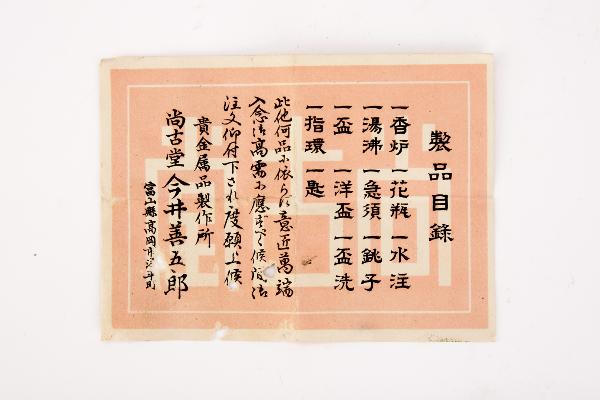 製品目錄
一香炉 一花瓶 一水注
一湯沸 一急須 一銚子
一盃 一洋盃 一盃洗
一指環 一匙
此他何品に依らず意匠萬端
入念御高需に應ずべく候間御
注文仰付下され度願上候
貴金属品製作所
尚古堂 今井善五郎
富山縣高岡市
尚古堂